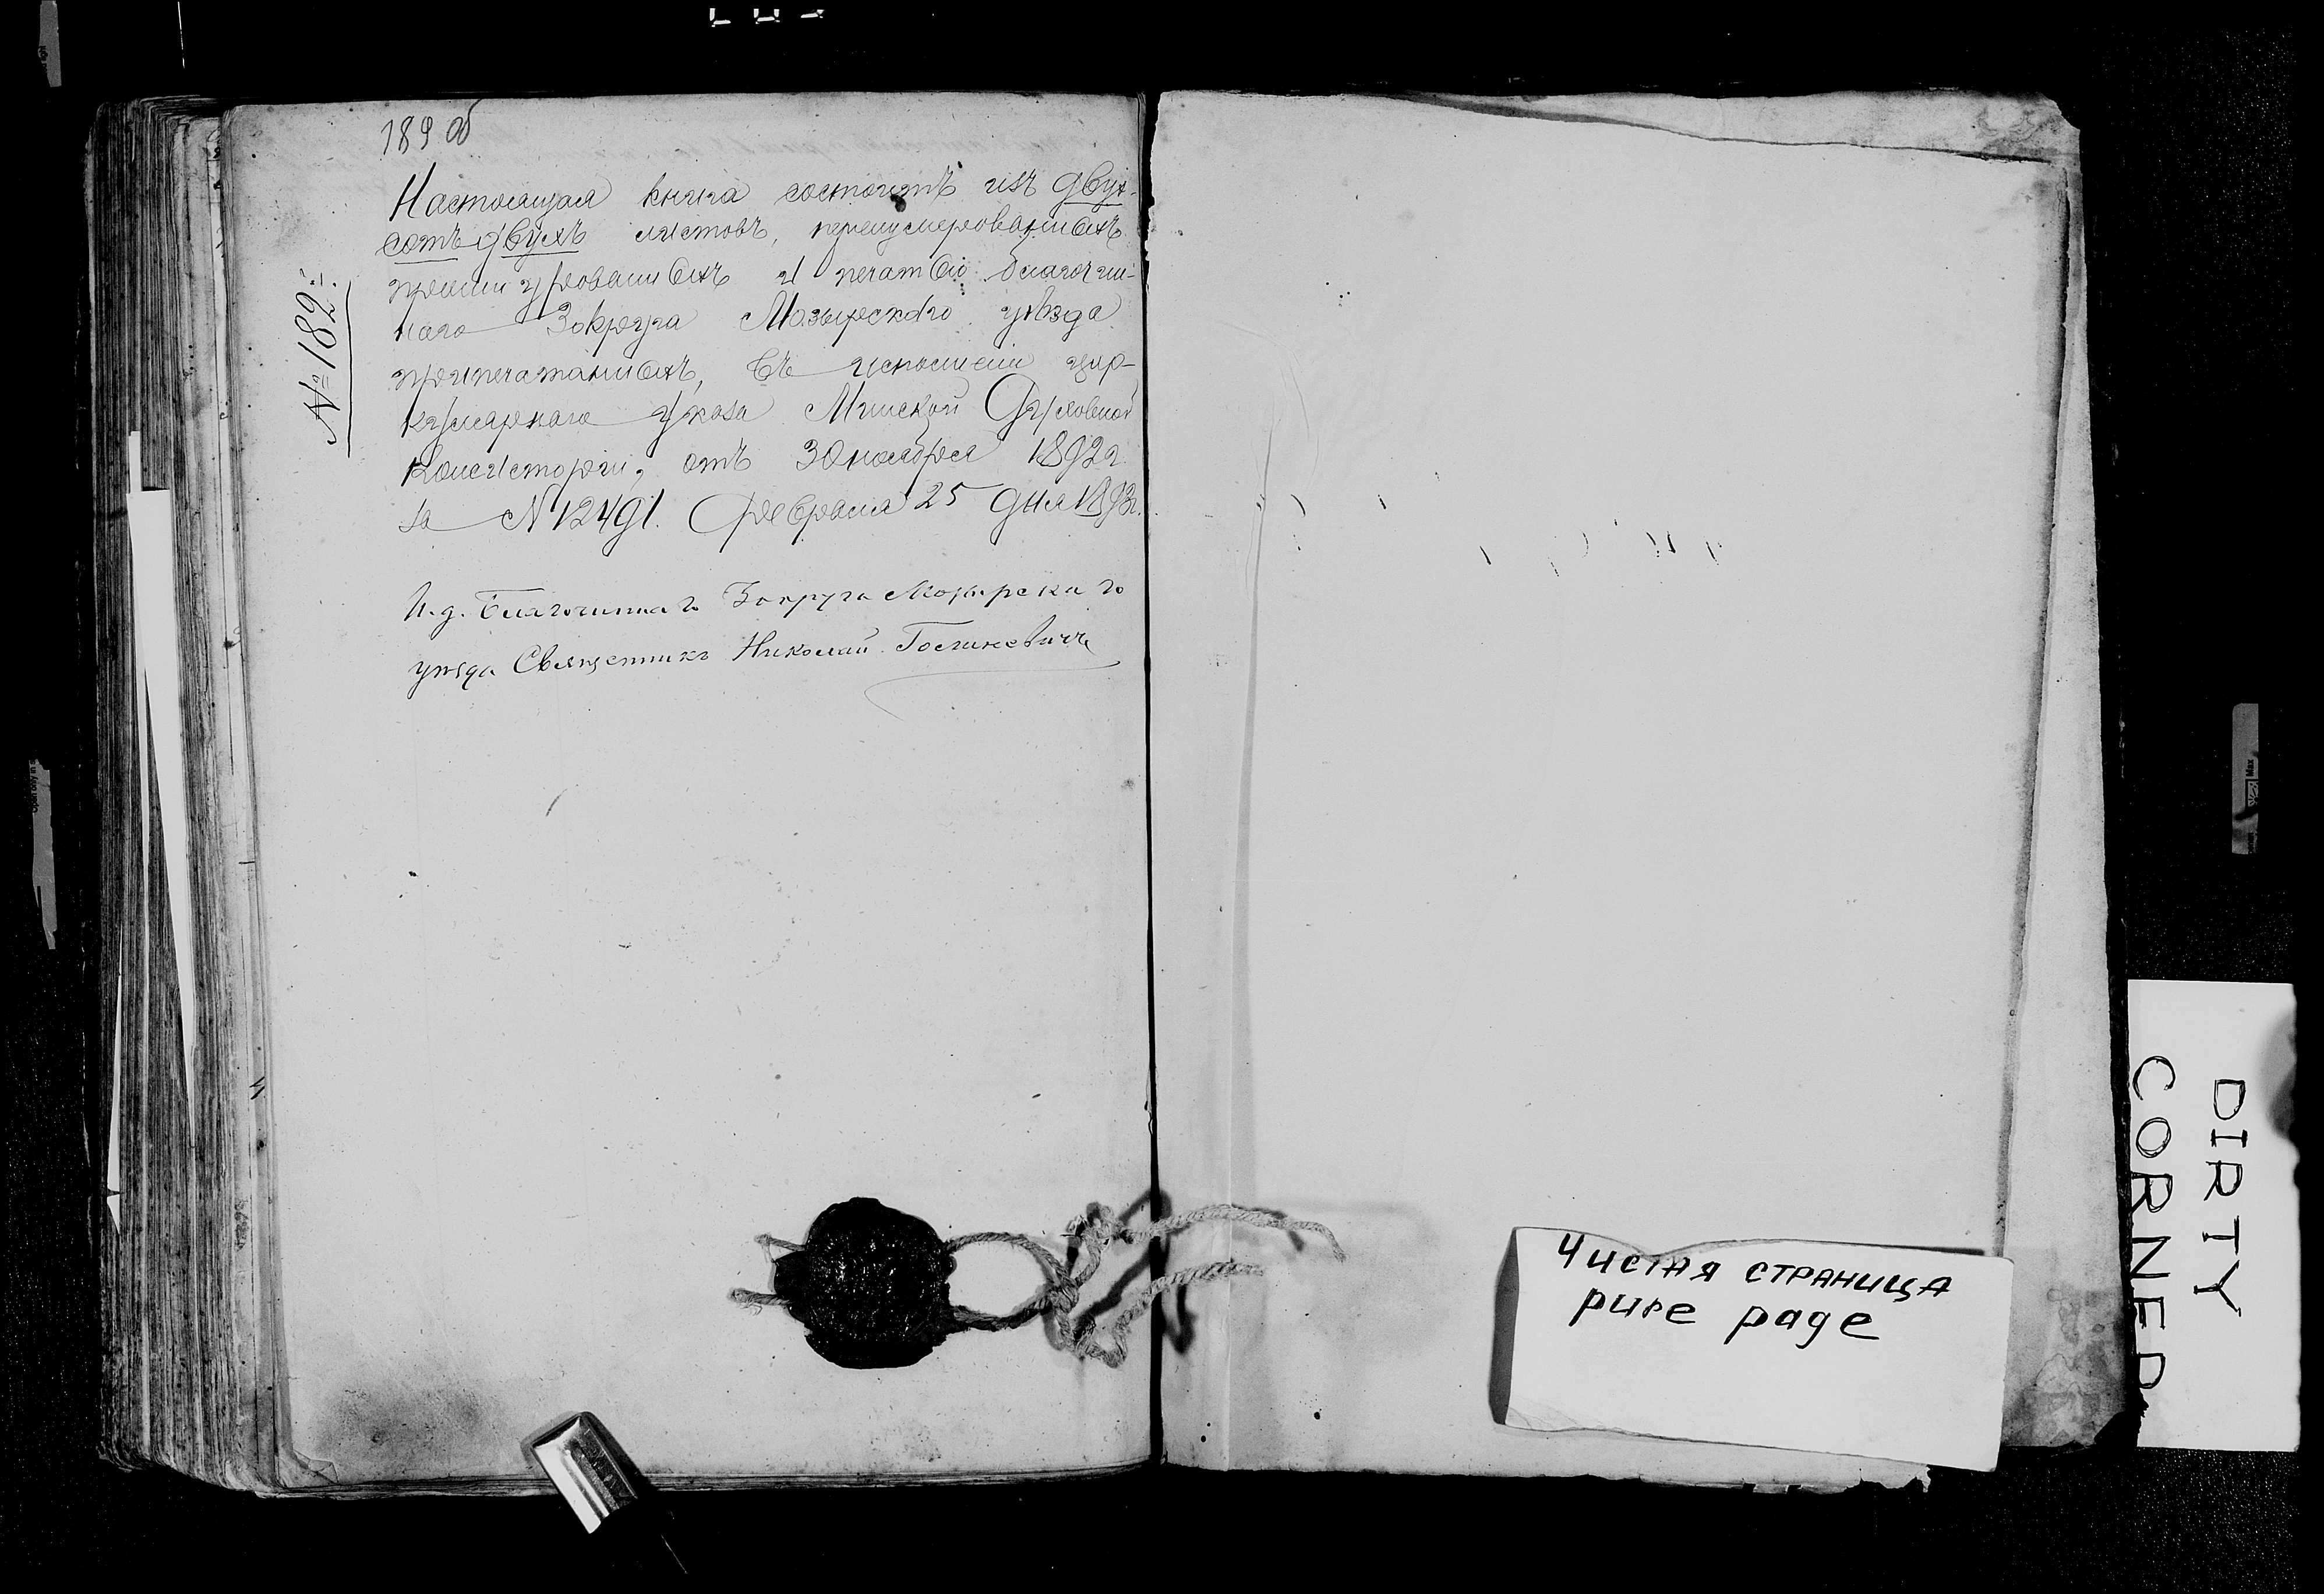 189 об
Настоящая книга состоитъ изъ двух-
сотъ двухъ листовъ, перенумерованныхъ
прошнурованныхъ и печатью благочин-
наго 3 округа Мозырскаго уѣзда
припечатанныхъ, въ исполненіи цир-
кулярнаго указа Минской Духовной
Консисторіи, отъ 30 ноября 1892 г.
за N 12491. Февраля 25 дня 1893 г.
№ 182.
И. д. Благочиннаго 3 округа Мозырскаго
уѣзда Священникъ Николай
Чистая страница
pure page
DIRTY
CORNER